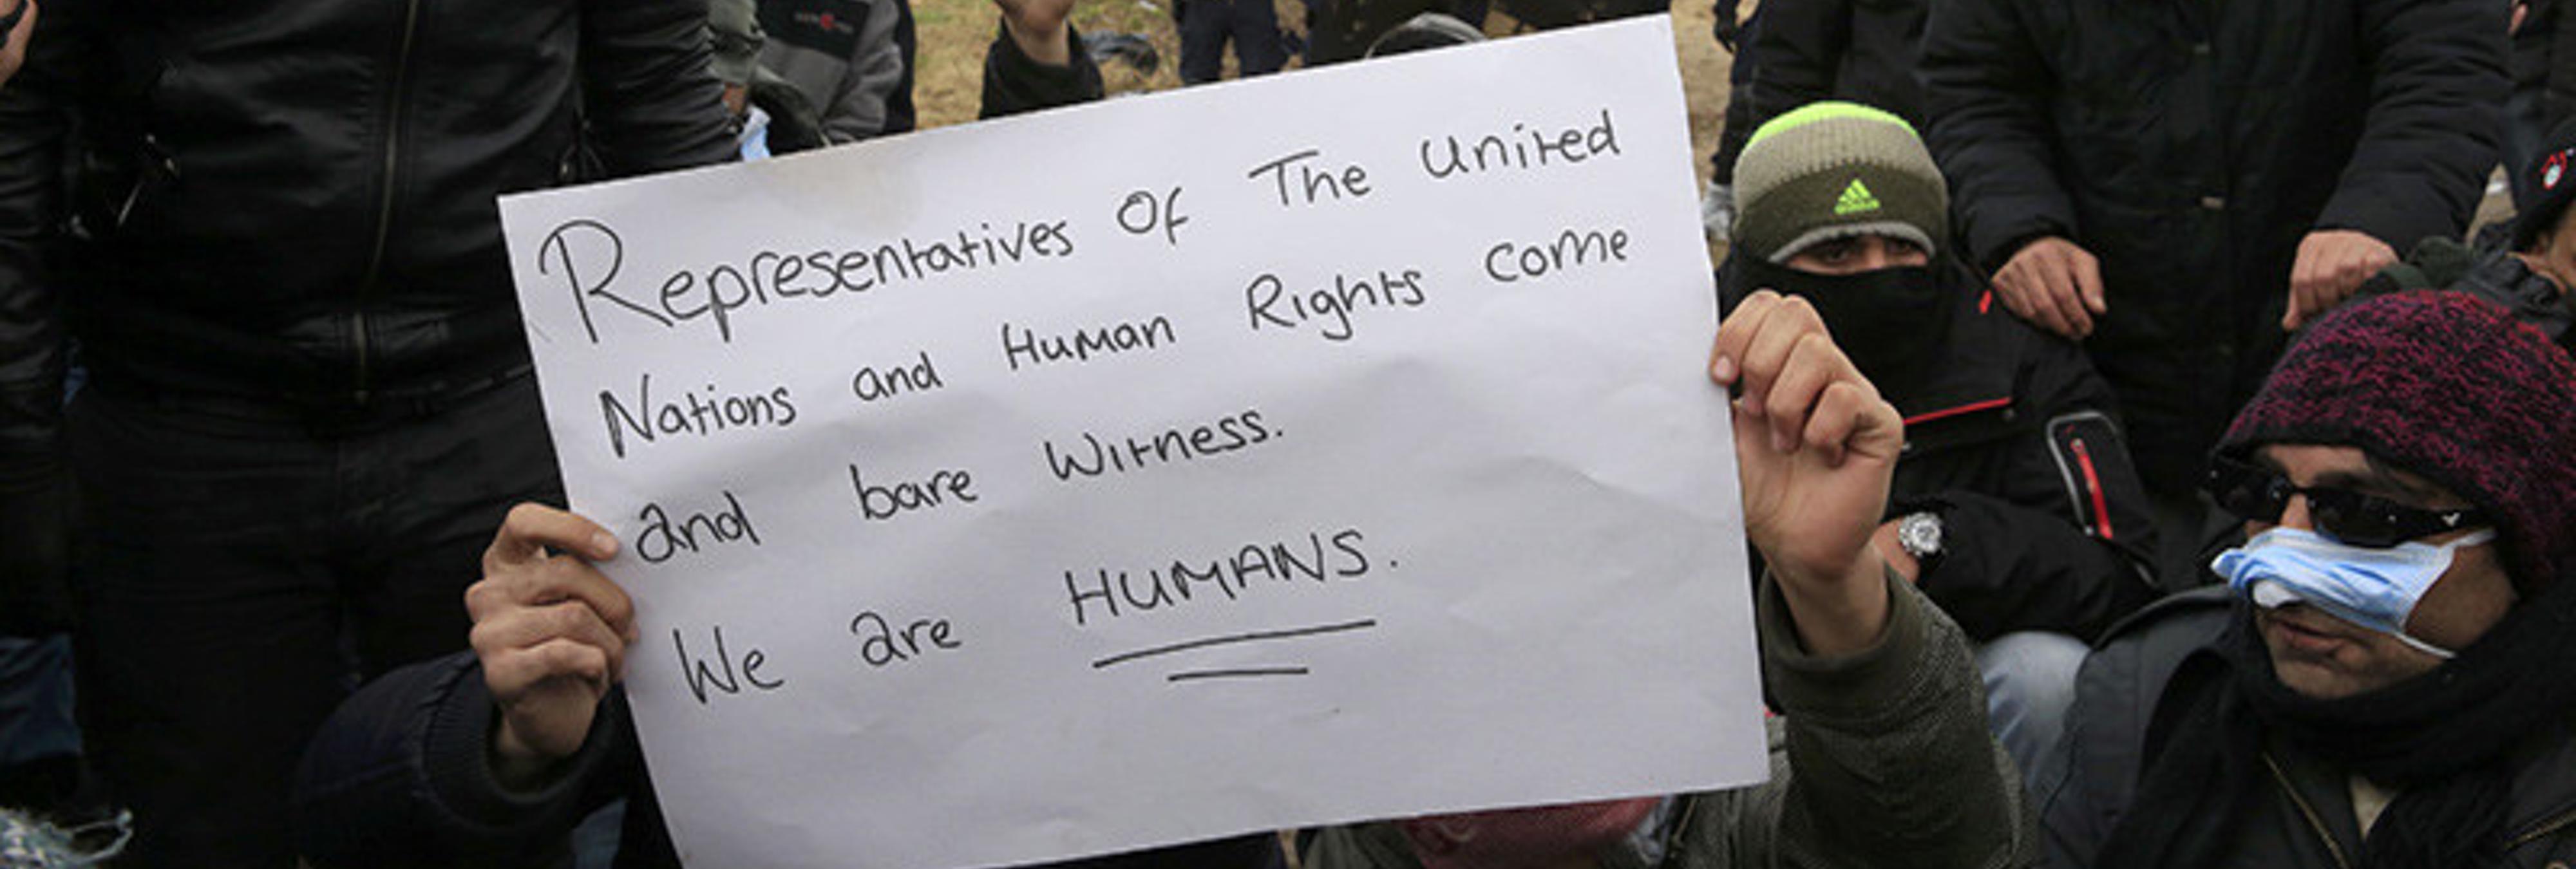 Representatives Of The United
Nations and Human Rights come
and bare Witness.
We are HUMANS.
adidas